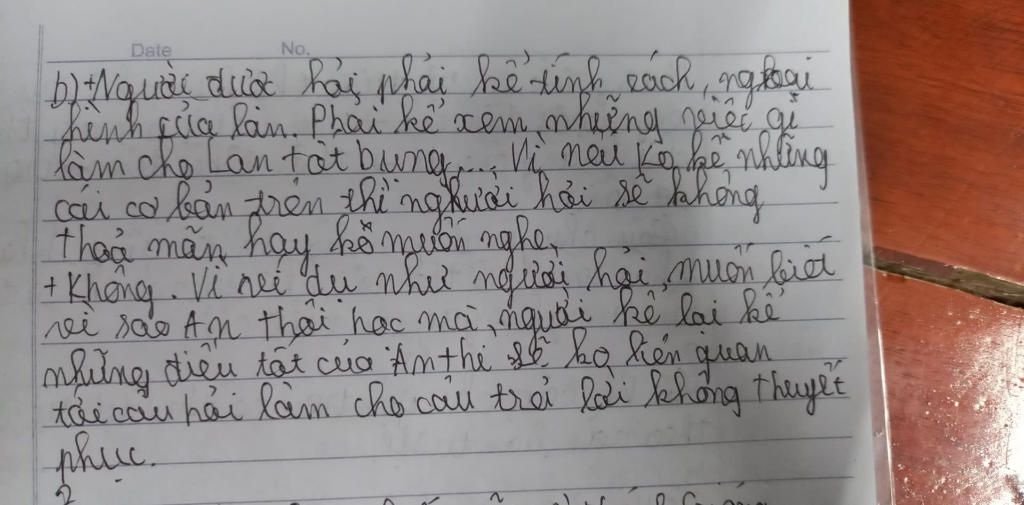 Date No.
b) + Người được hỏi phải kể tính cách, ngoại
hình của Lan. Phải kể xem những việc gì
làm cho Lan tốt bụng,... Vì nếu ko kể những
cái cơ bản trên thì người hỏi sẽ không
thoả mãn hay ko muốn nghe.
+ Không. Vì ví dụ như người hỏi, muốn biết
vì sao An thôi học mà, người kể lại kể
những điều tốt của An thì sẽ ko liên quan
tới câu hỏi làm cho câu trả lời không thuyết
phục.
2